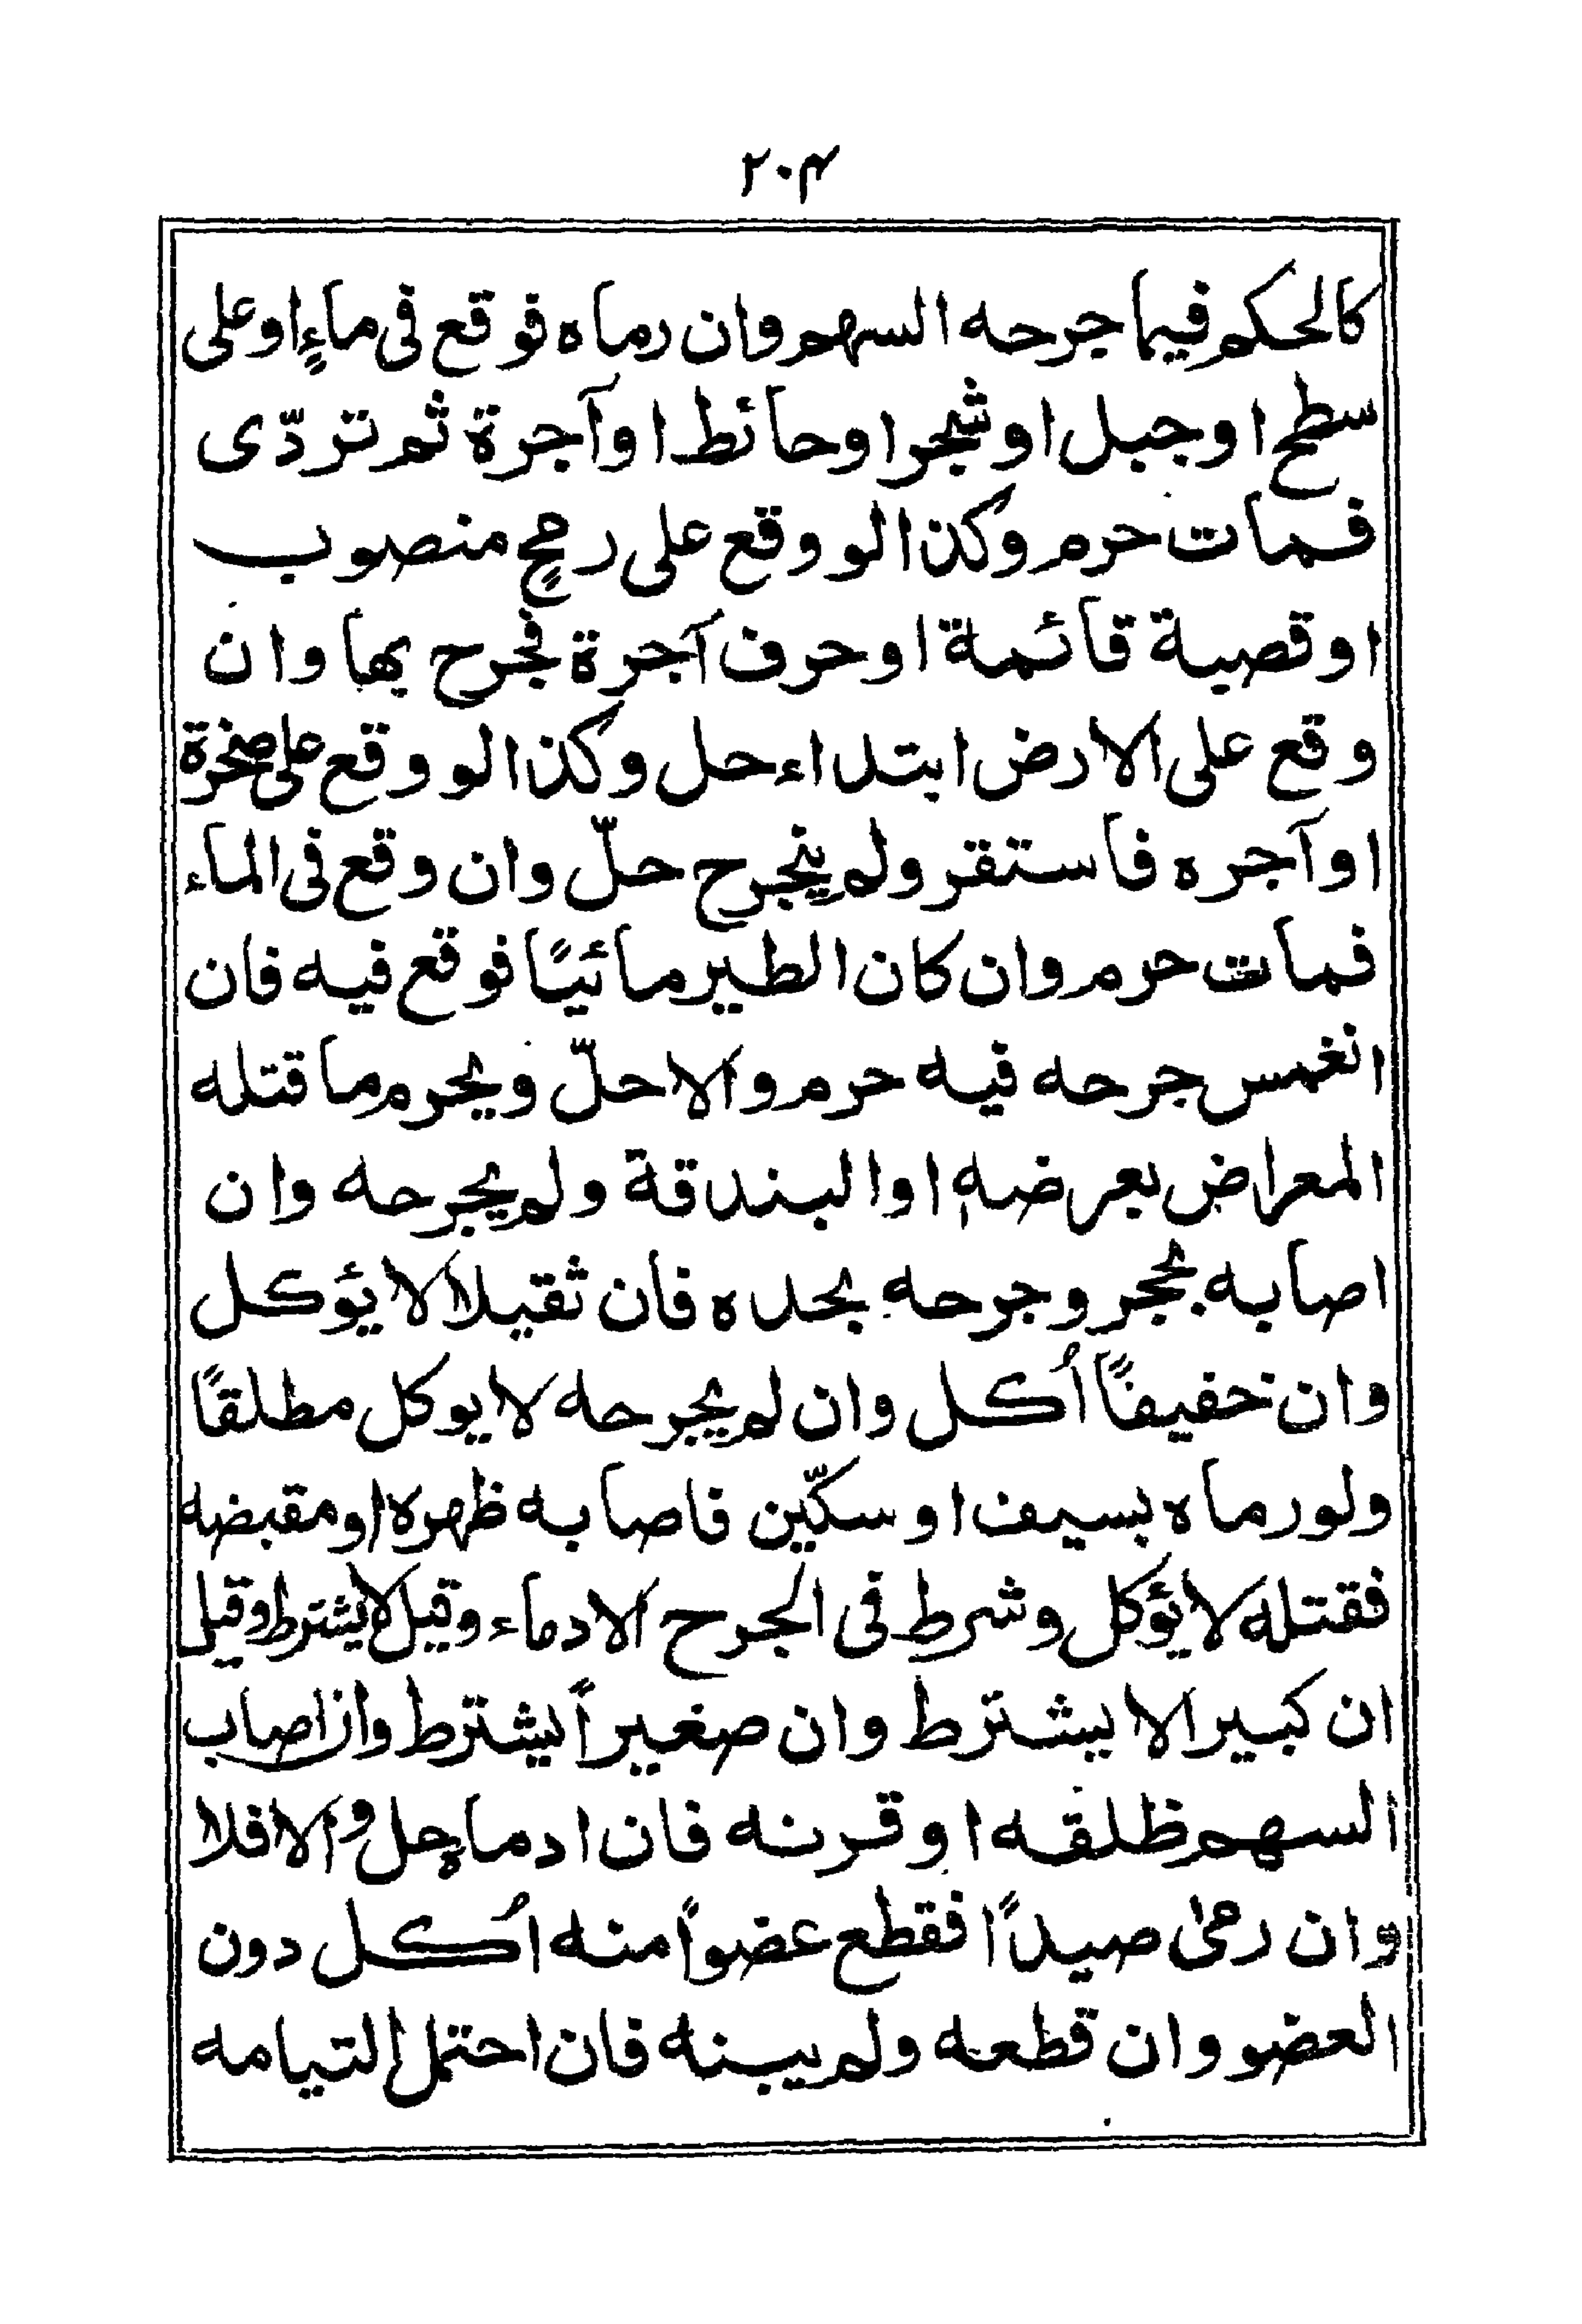 ٢٠٣
كالحكم فيما جرحه السهم وان رماه فوقع فى ماءٍ او على
سطح او جبل او شجر او حائط او آجرة ثم تردّى
فمات حرم وكذا لو وقع على رمحٍ منصوب
او قصبة قائمة او حرف آجرة فجرح بها وان
وقع على الارض ابتداء حل وكذا لو وقع على صخرة
او آجره فاستقر ولم ينجرح حلّ وان وقع فى الماء
فمات حرم وان كان الطير مائيًا فوقع فيه فان
انغمس جرحه فيه حرم والا حلّ ويحرم ما قتله
المعراض بعرضه او البندقة ولم يجرحه وان
اصابه بحجر وجرحه بحده فان ثقيلا لا يؤكل
وان خفيفًا أُكل وان لم يجرحه لا يوكل مطلقًا
ولو رماه بسيف او سكّين فاصابه ظهره او مقبضه
فقتله لا يؤكل وشرط فى الجرح الادماء وقيل لا يشترط وقيل
ان كبيرا لا يشترط وان صغيراً يشترط وان اصاب
السهم ظلفه او قرنه فان ادماه حل والا فلا
وان رمى صيداً فقطع عضواً منه اُكل دون
العضو وان قطعه ولم يبنه فان احتمل التيامه